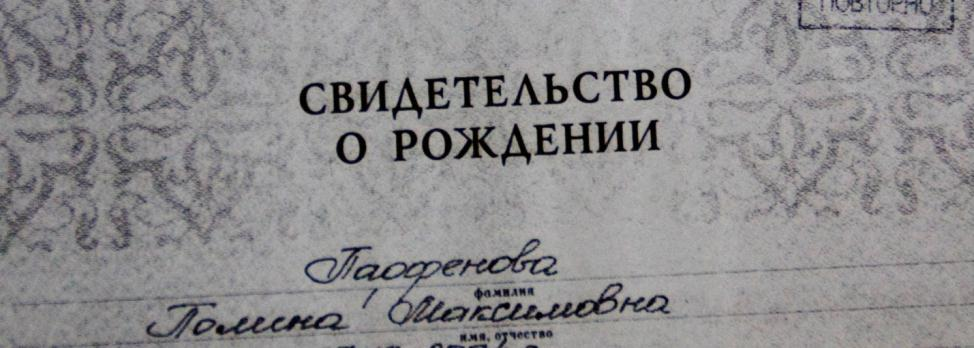 ПОВТОРНО
СВИДЕТЕЛЬСТВО
О РОЖДЕНИИ
Парфенова
фамилия
Полина Максимовна
имя, отчество